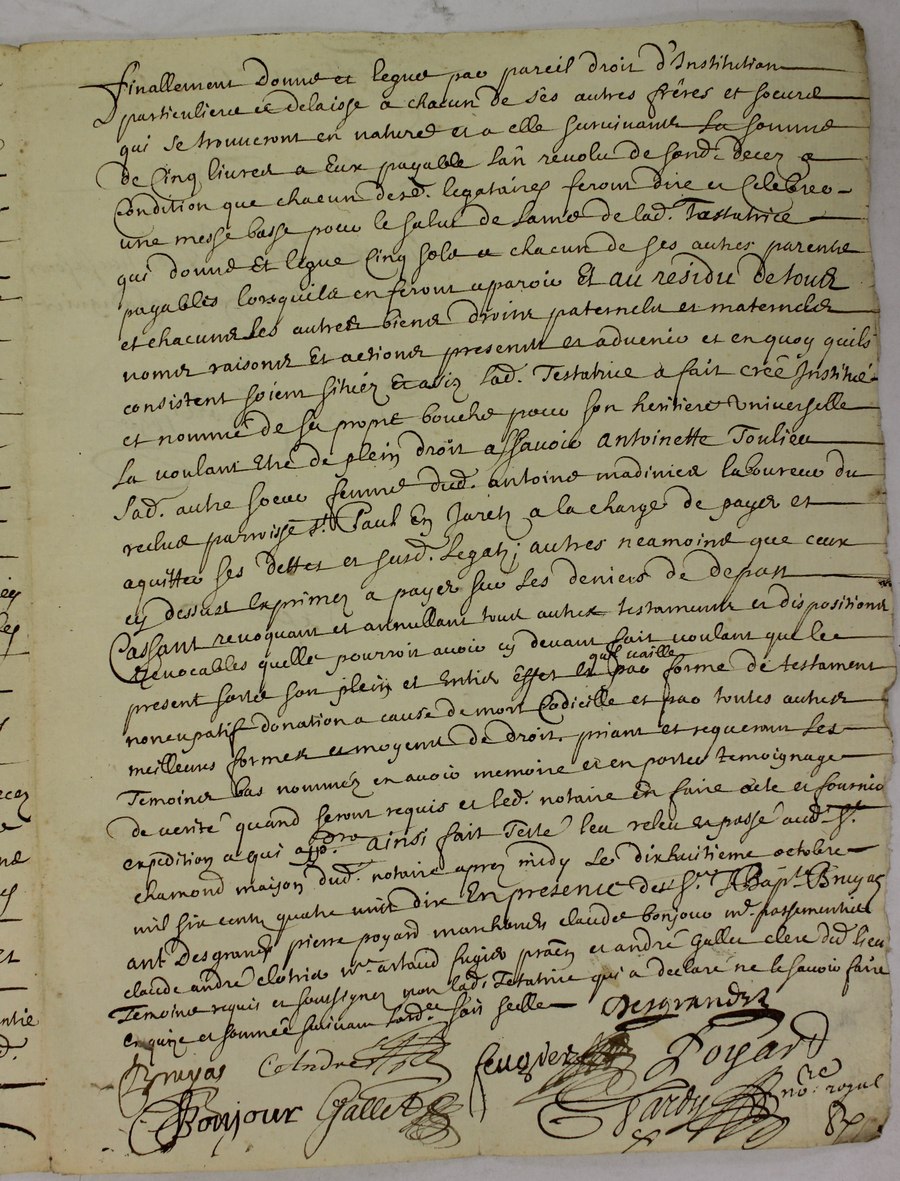 finallement donne et legue par pareil droit d'Institution
particuliere et delaisse a chacun de ses autres frêres et soeurs
qui se trouveront en nature et a elle survivants la somme
de Cinq livres a Eux payable lan revolu de sond. decez a
Condition que chacun desd. legataires feront dire et Celebrer
une messe basse pour le salut de lame de lad. Testatrice
qui donne Et legue Cinq sols a chacun de ses autres parents
payables lorsquils en feront aparoir Et au residu de tous
et chacuns ses autres biens droits paternels et maternels
noms raisons Et actions presents et advenir et en quoy quils
consistent soient situéz Et assis lad. Testatrice a fait creé Institué
et nommé de sa propre bouche pour son heritiere Universelle
La voulant Etre de plein droit assavoir antoinette Toulieu
sad. autre soeur femme dud. antoine madinier laboureur du
reclus parroisse st. Paul En Jarets a la charge de payer et
aquitter ses dettes et susd. Legatz autres neamoins que ceux
cy dessus Exprimez a payer sur les deniers de depart
Cassant revoquant et annullant tous autres testaments et dispositions
Revocables quelle pourroit avoir cy devant fait voulant que le
present sorte son plein et Entier Effet et quil vaille par forme de testament
noncupatif donation a cause de mort Codicille et par toutes autres
meilleurs formes et moyens de droit. priant et requerant Les
Temoins bas nommés en avoir memoire et en porter temoignage
de verité quand seront requis et led. notaire en faire acte et fournir
expedition a qui appdra. ainsi fait Testé leu releu et passé aud. St.
chamond maison dud. notaire apres midy le dixhuitieme octobre
mil six cents quatre vint dix En presence des Srs. J Bapt. Bruyas
ant Desgrands pierre poyard marchands claude bonjour me. passementier
claude andré clotrier Me. artaud fugier praen et andré Gallet clerc dud. lieu
Temoins requis et soussignez non lad. Testatrice qui a declaré ne le savoir faire
enquize et sommée suivant lord.ce soit scellé Desgrands
Bruyas C Andre feugier Poyard
Bonjour Gallet Tardy no.re royal